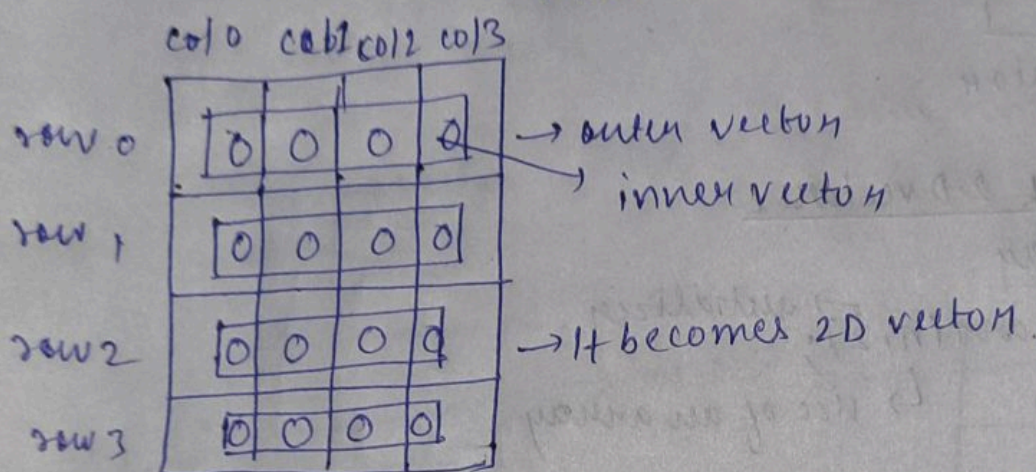 col 0 col1 col2 col3
row 0 0 0 0 0 → outer vector
→ inner vector
row 1 0 0 0 0
row 2 0 0 0 0 → It becomes 2D vector.
row 3 0 0 0 0